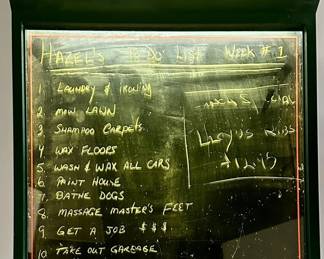 HAZEL'S TO DO LIST WEEK #1
1. LAUNDRY & IRONING
2 MOW LAWN
3 SHAMPOO CARPETS
4 WAX FLOORS
5 WASH & WAX ALL CARS
6. PAINT HOUSE
7. BATHE DOGS
8. MASSAGE MASTER'S FEET
9. GET A JOB $$$
10. TAKE OUT GARBAGE